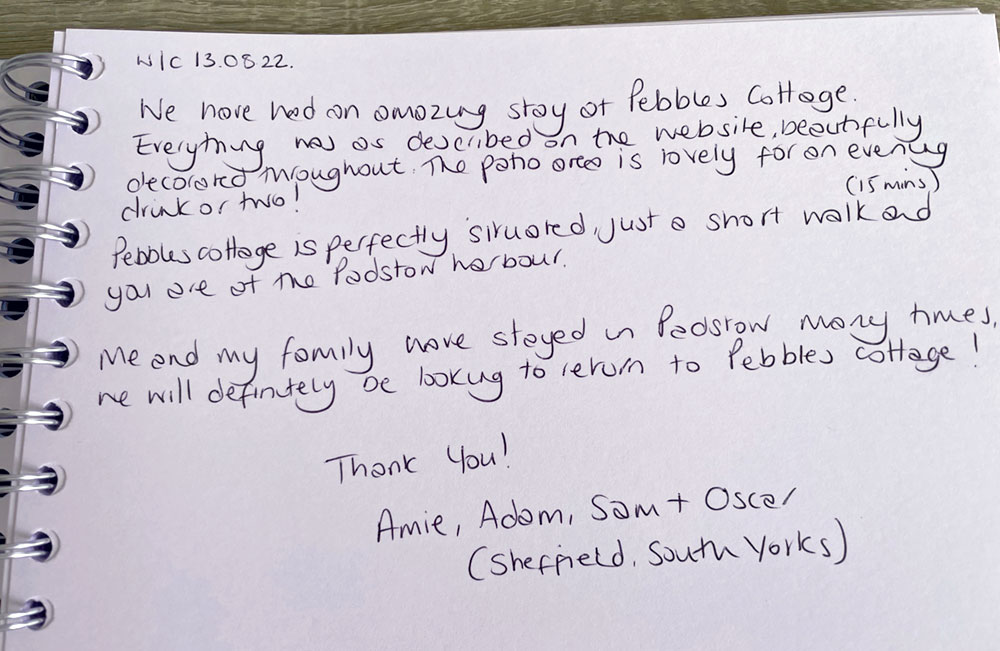 W/C 13.08 22.
We have had an amazing stay at Pebbles Cottage.
Everything was as described on the website, beautifully
decorated throughout. The patio area is lovely for an evening
drink or two!
(15 mins)
Pebbles cottage is perfectly situated, just a short walk and
you are at the Padstow harbour.
Me and my family have stayed in Padstow many times,
we will definitely be looking to return to Pebbles cottage!
Thank You!
Amie, Adam, Sam + Oscar
(Sheffield, South Yorks)